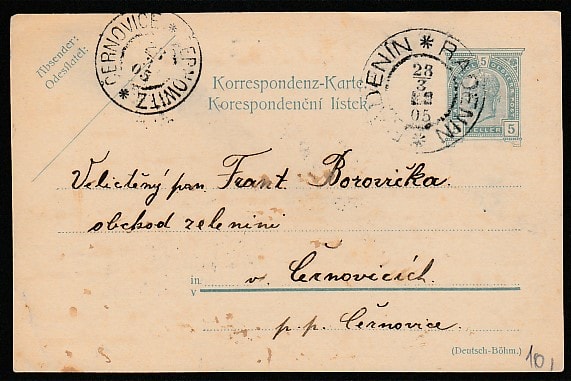 Absender:
Odesílatel:
ČERNOVICE * ČERNOWITZ *
05
RADENÍN * RADENÍN *
28
3
05
5
HELLER 5
Korrespondenz-Karte
Korespondenční lístek
Velictěný pan Frant. Borovička
obchod zeleniní
in
v Černovicích
p. p. Černovice.
(Deutsch-Böhm.)
10,